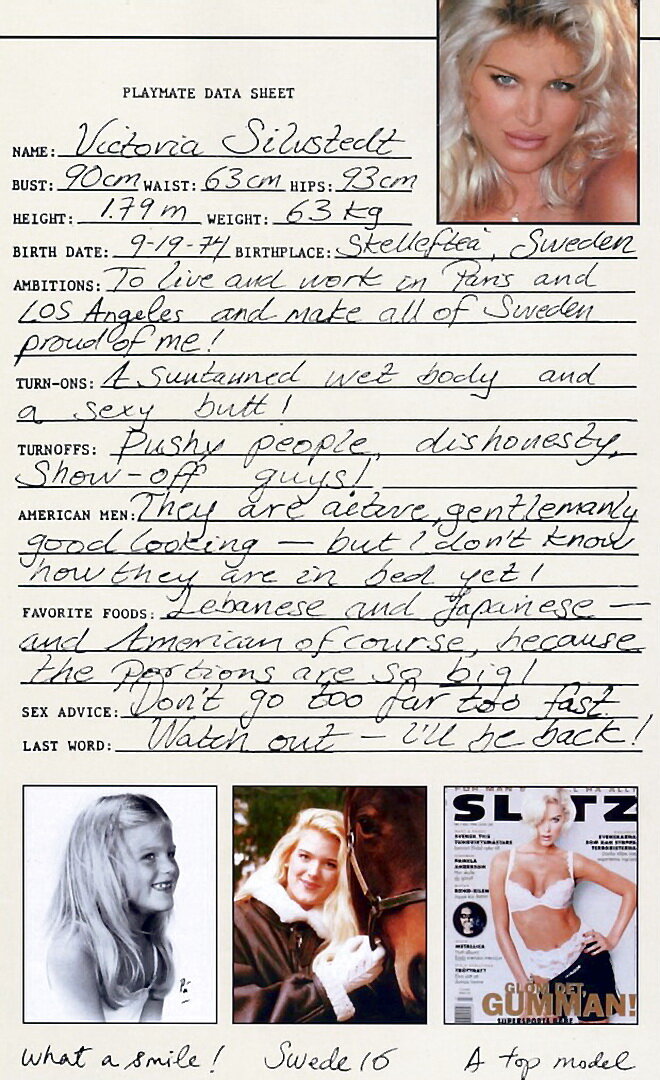 PLAYMATE DATA SHEET
NAME: Victoria Silvstedt
BUST: 90cm WAIST: 63cm HIPS: 93cm
HEIGHT: 1.79m WEIGHT: 63 kg
BIRTH DATE: 9-19-74 BIRTHPLACE: Skelleftea, Sweden
AMBITIONS: To live and work in Paris and
LOS Angeles and make all of Sweden
proud of me!
TURN-ONS: A suntanned wet body and
a sexy butt!
TURNOFFS: Pushy people, dishonesty,
Show-off guys!
AMERICAN MEN: They are active, gentlemanly
good looking — but I don't know
how they are in bed yet!
FAVORITE FOODS: Lebanese and Japainese —
and American of course, because
the Portions are so big!
SEX ADVICE: Don't go too far too fast.
LAST WORD: Watch out — I'll be back!
SL TZ
PAMELA
ANDERSON
METALLICA
GLÖM DET,
GUMMAN!
what a smile!
Swede 16
A top model